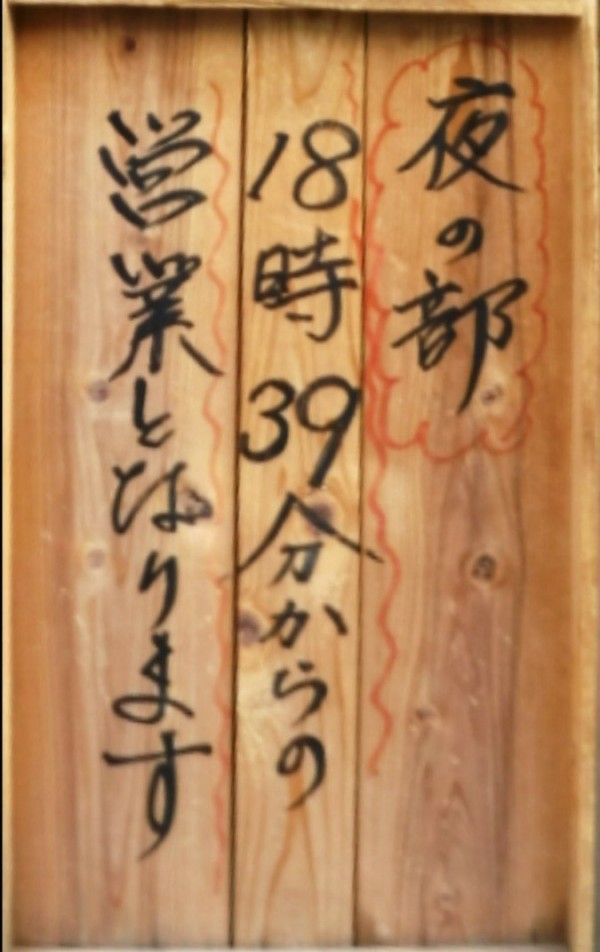 夜の部
18時39分からの
営業となります